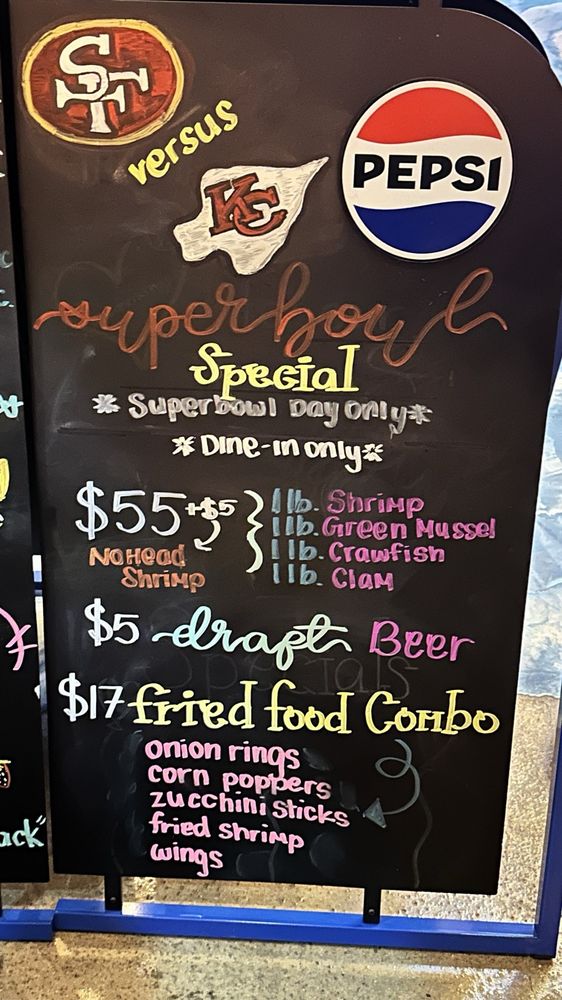 SF
versus
KC
PEPSI
superbowl
Special
* Superbowl Day only *
* Dine-in only *
$55 +$5
No Head
Shrimp
1 lb. Shrimp
1 lb. Green Mussel
1 lb. Crawfish
1 lb. Clam
$5 draft Beer
Specials
$17 fried food Combo
onion rings
corn poppers
zucchini sticks
fried shrimp
wings
ack"